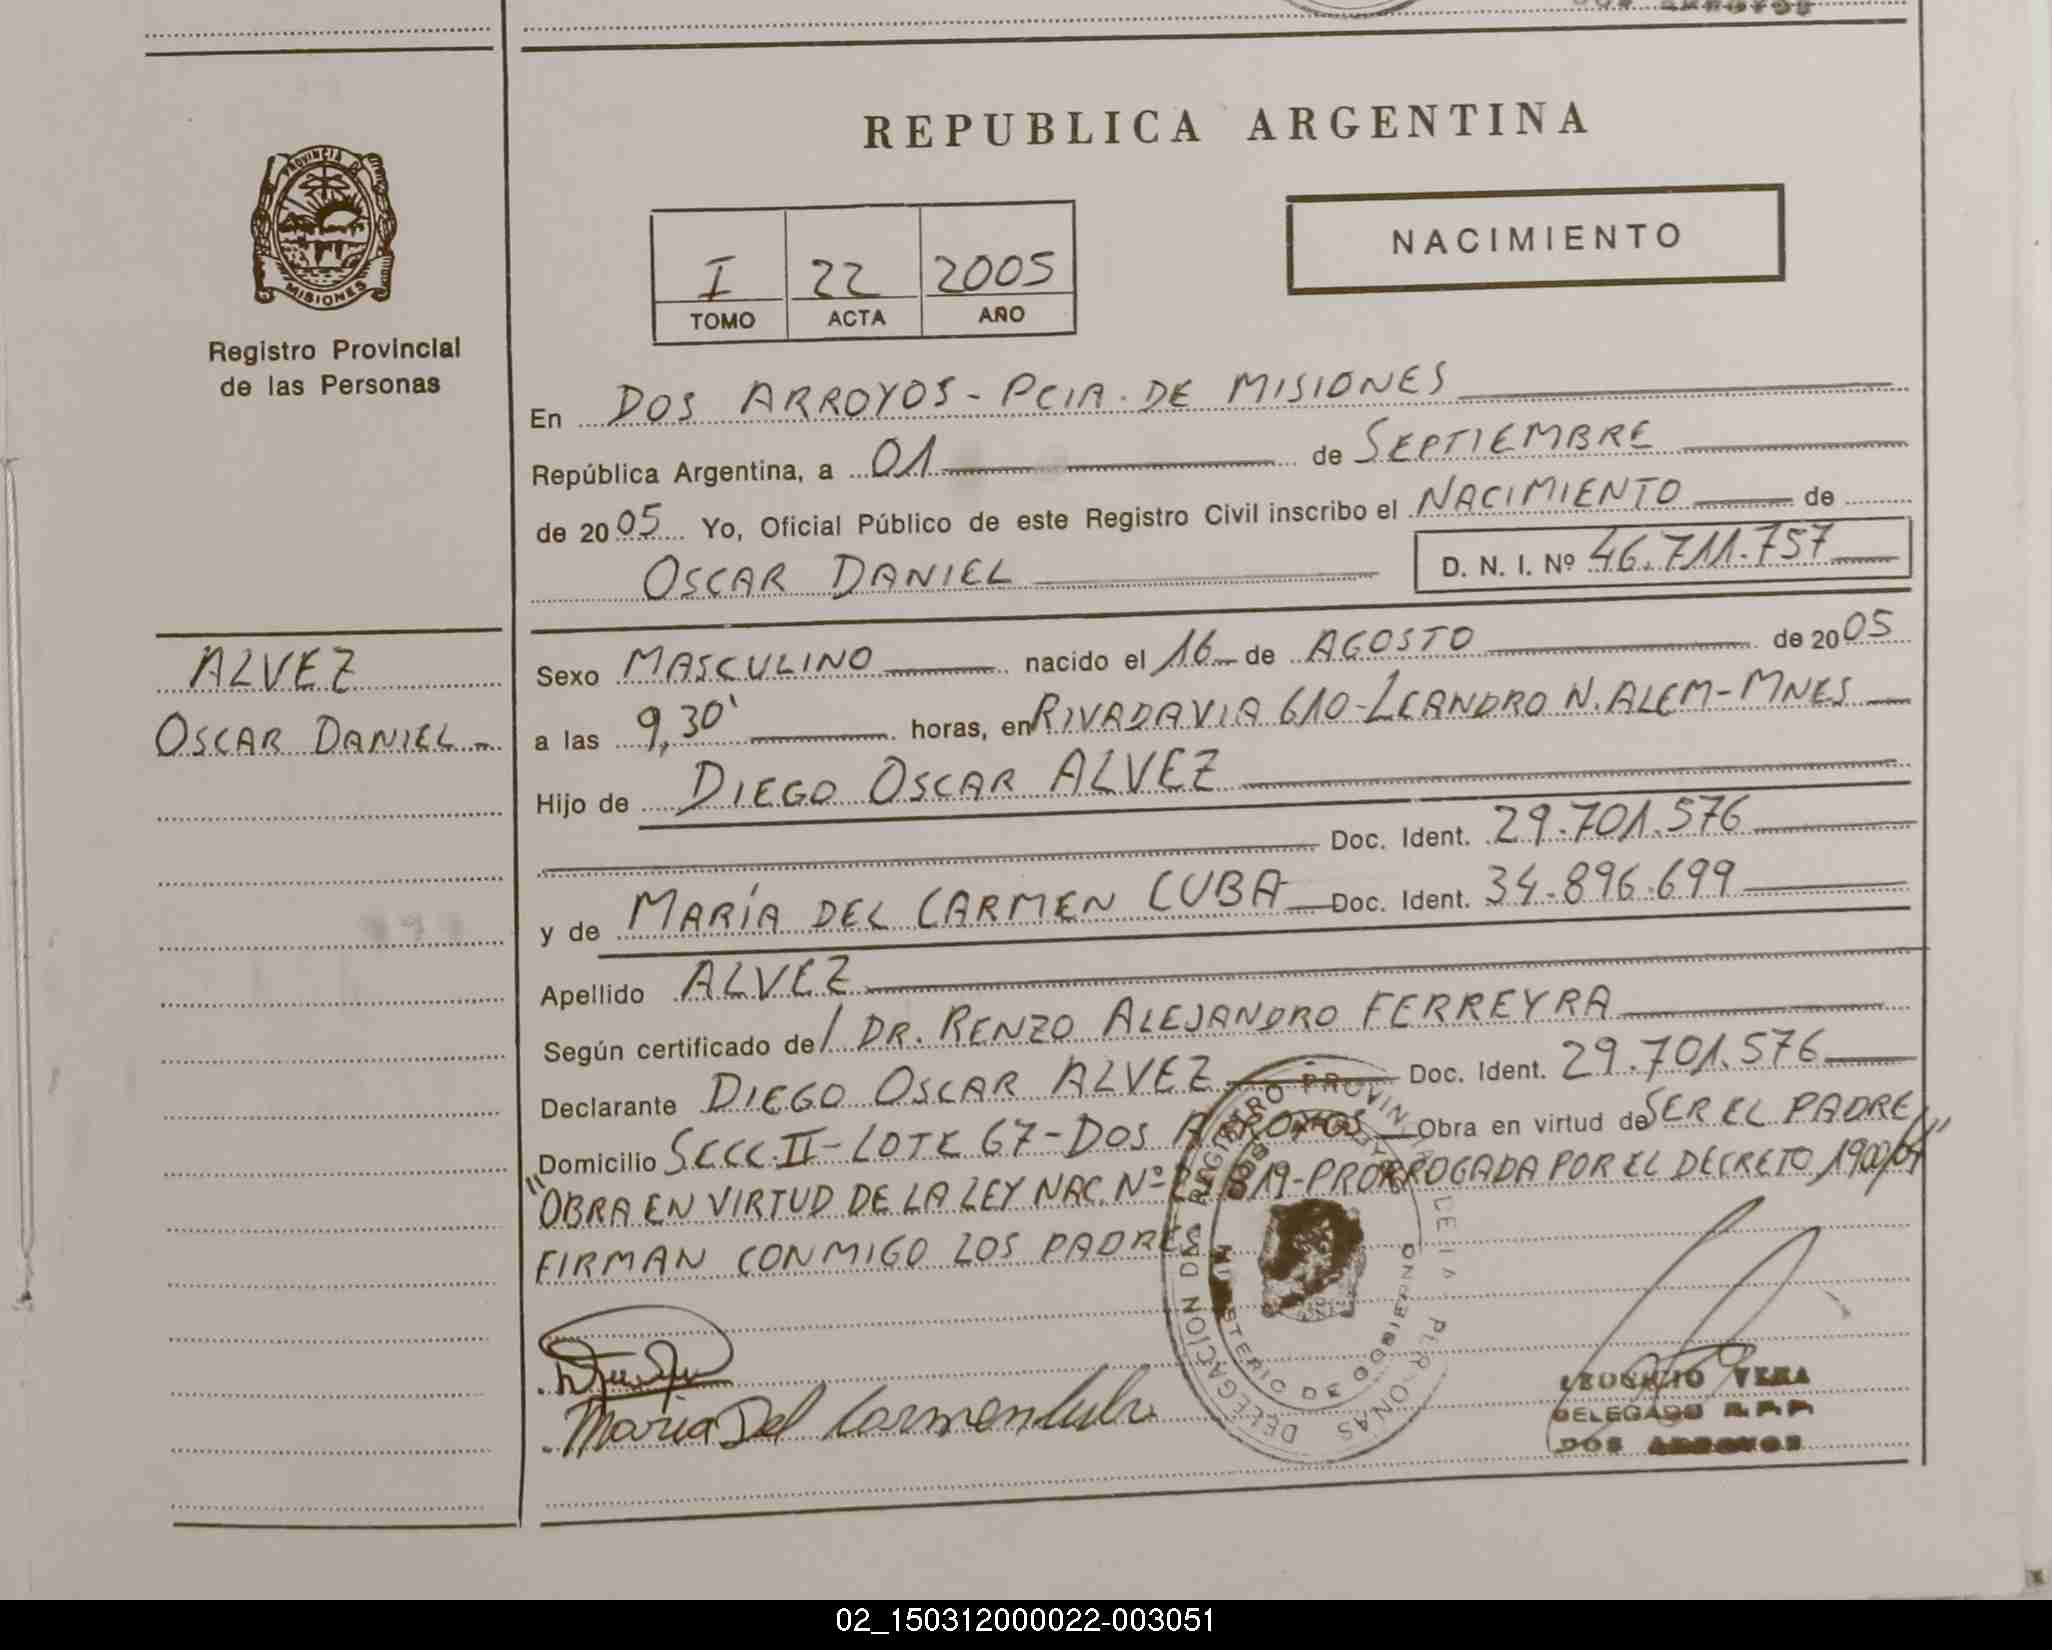 REPUBLICA ARGENTINA
PROVINCIA DE
MISIONES
Registro Provincial
de las Personas
I 22 2005
TOMO ACTA AÑO
NACIMIENTO
En DOS ARROYOS - PCIA. DE MISIONES
República Argentina, a 01 de SEPTIEMBRE
de 2005 Yo, Oficial Público de este Registro Civil inscribo el NACIMIENTO de
OSCAR DANIEL D. N. I. Nº 46.711.757
ALVEZ
OSCAR DANIEL -
Sexo MASCULINO nacido el 16 de AGOSTO de 2005
a las 9,30' horas, en RIVADAVIA 610 - LEANDRO N. ALEM - MNES
Hijo de DIEGO OSCAR ALVEZ
Doc. Ident. 29.701.576
y de MARÍA DEL CARMEN CUBA Doc. Ident. 34.896.699
Apellido ALVEZ
Según certificado de/ DR. RENZO ALEJANDRO FERREYRA
Declarante DIEGO OSCAR ALVEZ Doc. Ident. 29.701.576
Domicilio SECC. II - LOTE 67 - DOS ARROYOS Obra en virtud de SER EL PADRE
"OBRA EN VIRTUD DE LA LEY NAC. Nº 819 - PRORROGADA POR EL DECRETO 1900/04"
FIRMAN CONMIGO LOS PADRES
Maria Del Carmen Cuba
DELEGACION REGISTRO PROVINCIAL PERSONAS
MINISTERIO DE GOBIERNO
LEONCIO VERA
DELEGADO R.P.P.
DOS ARROYOS
02_150312000022-003051